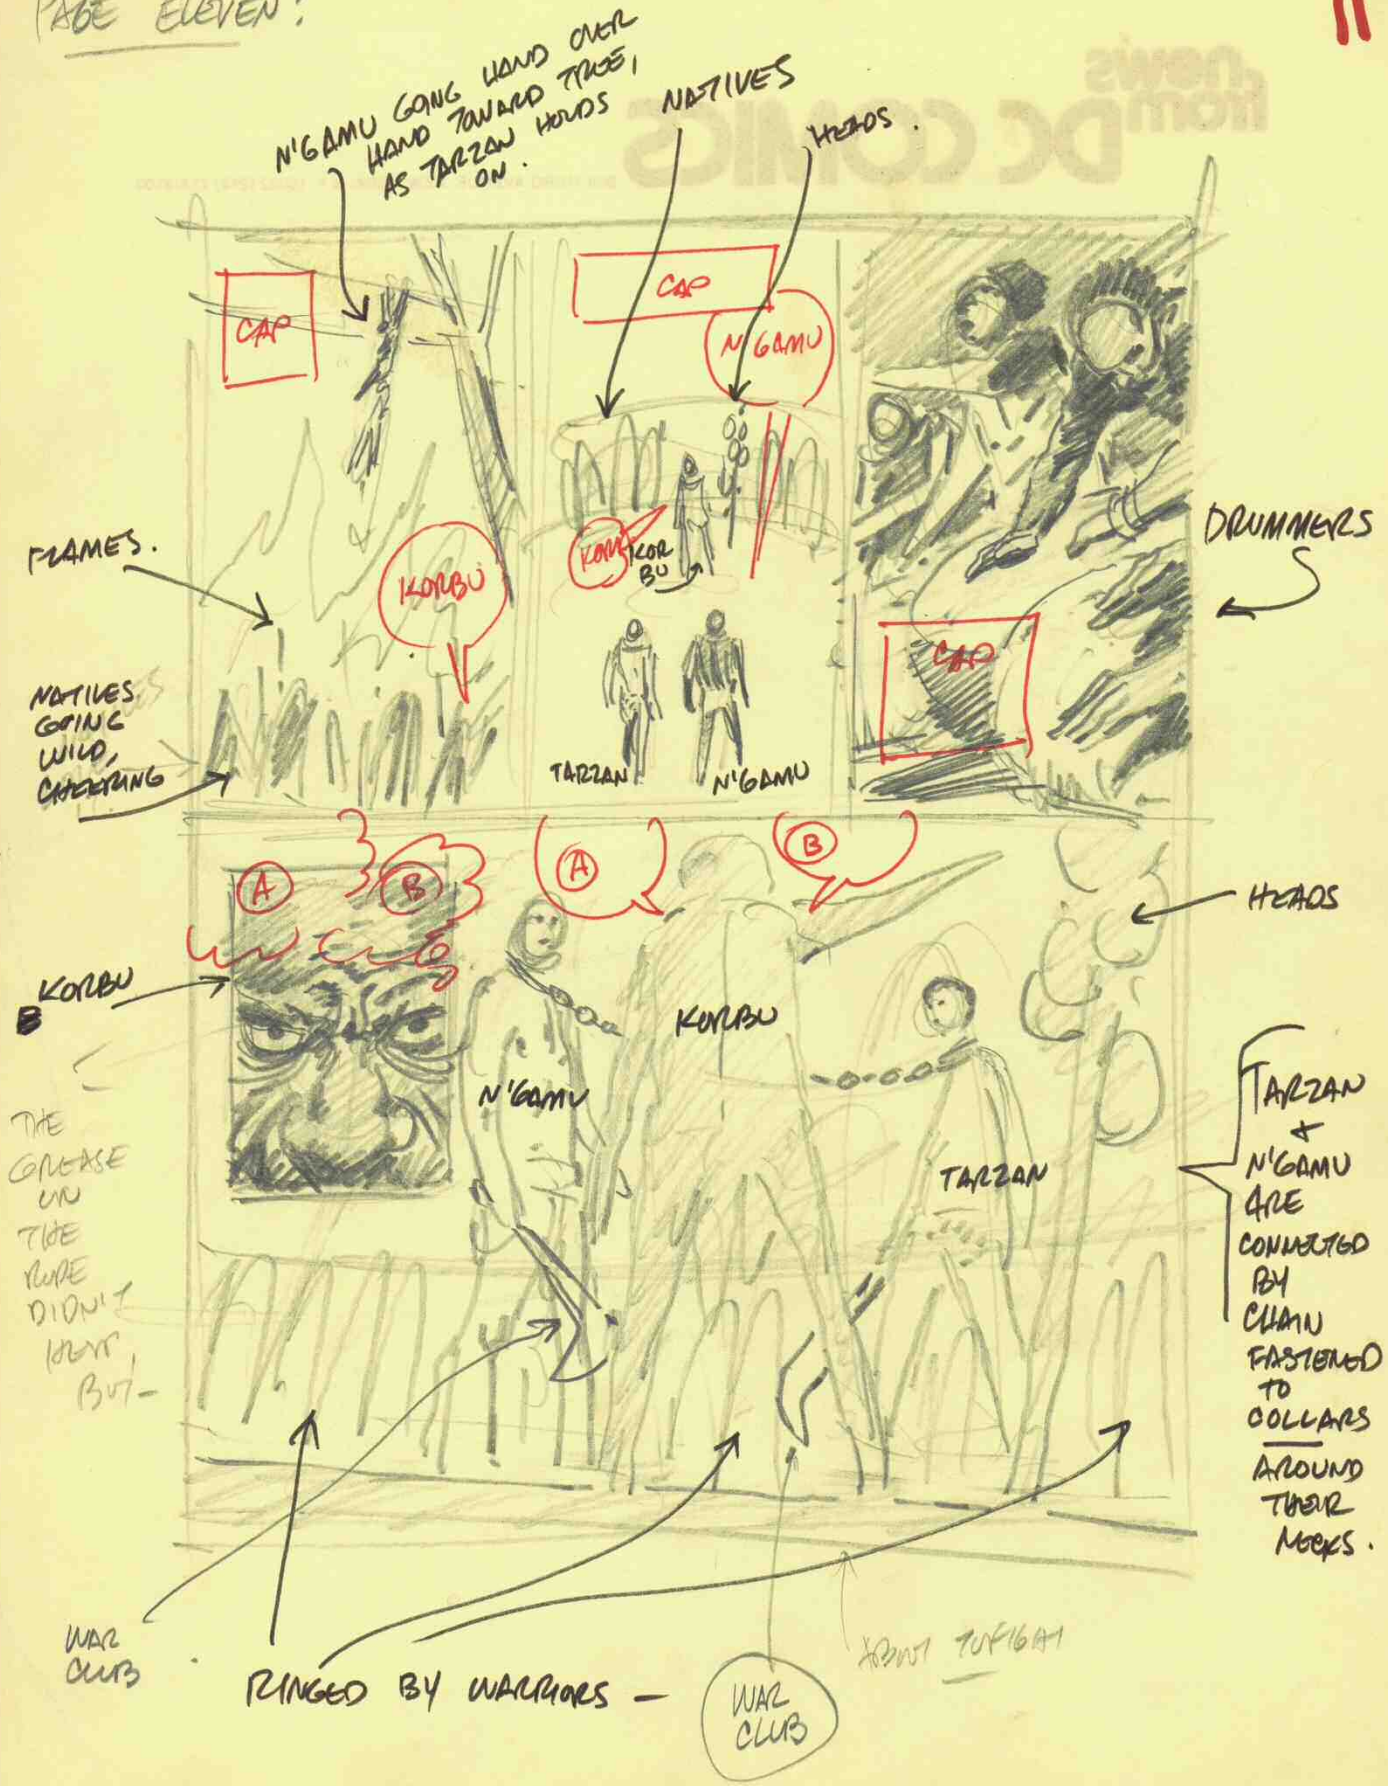 PAGE ELEVEN:
11
news
from
DC COMICS
N'GAMU GOING HAND OVER
HAND TOWARD TREE,
AS TARZAN HOLDS
ON.
NATIVES
HEADS.
CAP
CAP
N'GAMU
FLAMES.
KORBU
KORBU
KOR
BU
DRUMMERS
CAP
NATIVES
GOING
WILD,
CHEERING
TARZAN
N'GAMU
A
B
A
B
HEADS
KORBU
KORBU
N'GAMU
TARZAN
THE
GREASE
ON
THE
ROPE
DIDN'T
HELP,
BUT-
TARZAN
+
N'GAMU
ARE
CONNECTED
BY
CHAIN
FASTENED
TO
COLLARS
AROUND
THEIR
NECKS.
WAR
CLUB
RINGED BY WARRIORS -
WAR
CLUB
ABOUT TO FIGHT